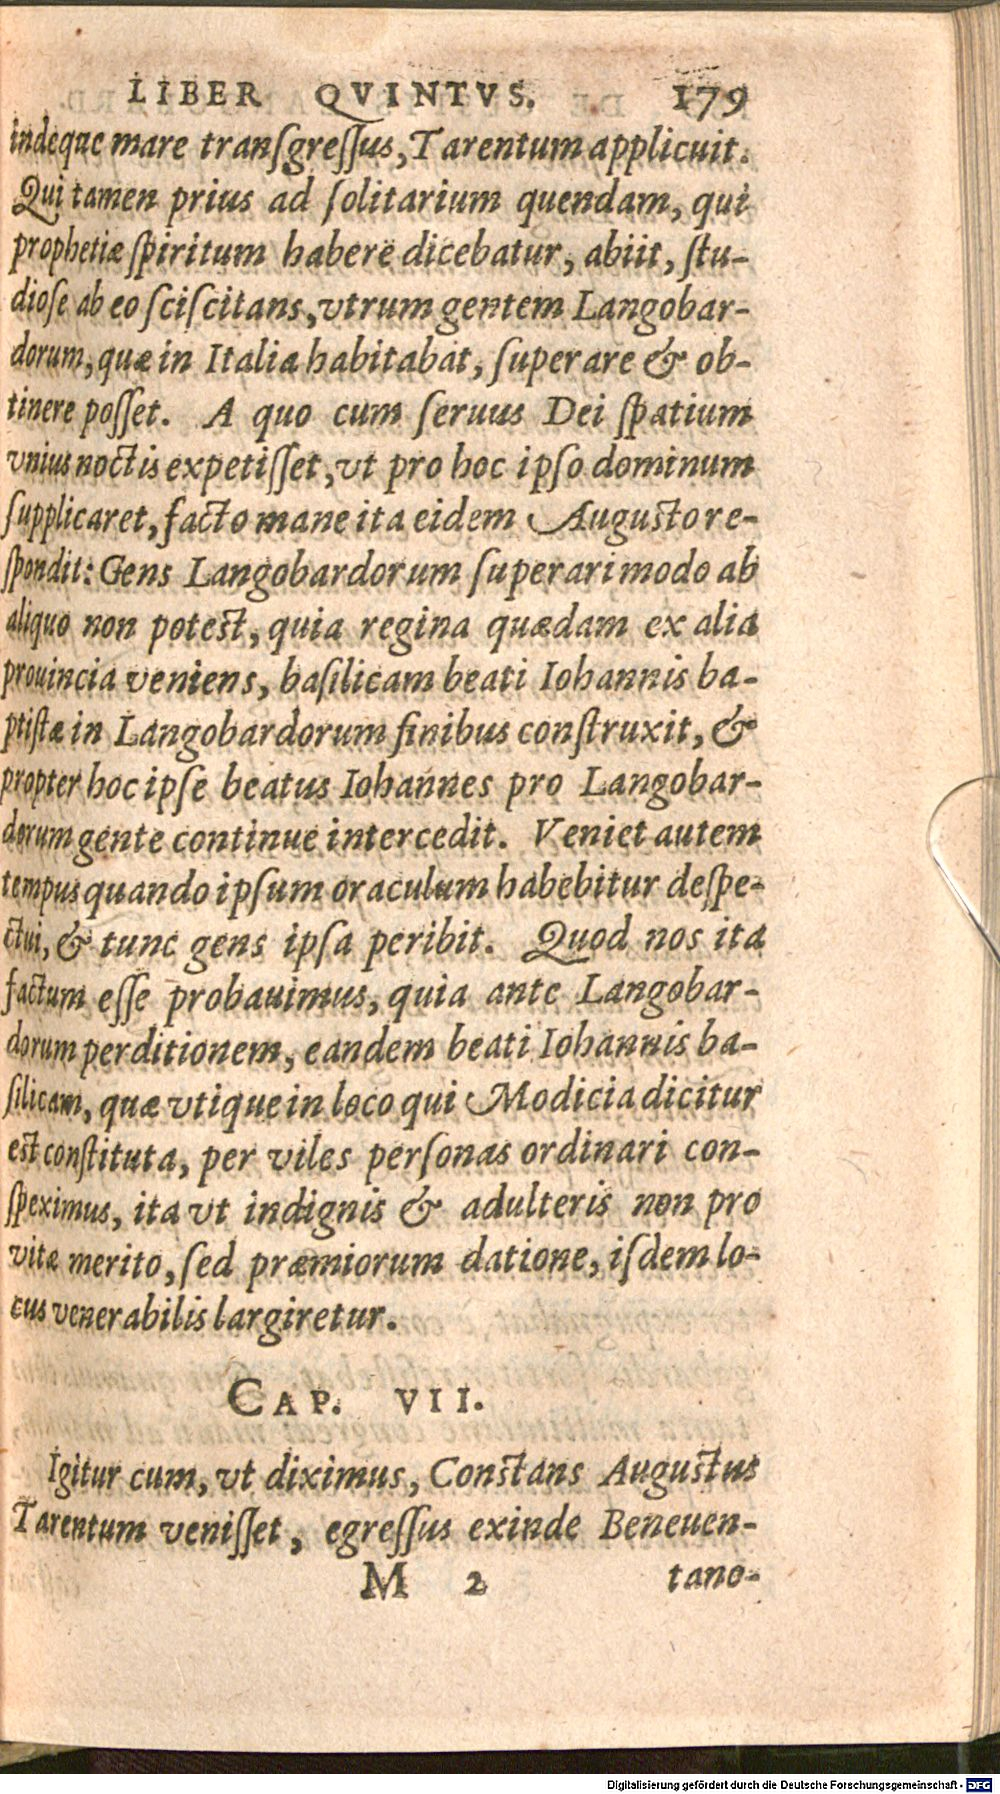 LIBER QVINTVS. 179
indeque mare transgreſſus, Tarentum applicuit.
Qui tamen prius ad ſolitarium quendam, qui
prophetiæ ſpiritum habere dicebatur, abiit, ſtu-
dioſe ab eo ſciſcitans, vtrum gentem Langobar-
dorum, quæ in Italia habitabat, ſuperare & ob-
tinere poſſet. A quo cum ſeruus Dei ſpatium
vnius noctis expetiſſet, vt pro hoc ipſo dominum
ſupplicaret, facto mane ita eidem Auguſto re-
ſpondit: Gens Langobardorum ſuperari modo ab
aliquo non poteſt, quia regina quædam ex alia
prouincia veniens, baſilicam beati Iohannis ba-
ptiſtæ in Langobardorum finibus conſtruxit, &
propter hoc ipſe beatus Iohannes pro Langobar-
dorum gente continue intercedit. Veniet autem
tempus quando ipſum oraculum habebitur deſpe-
ctui, & tunc gens ipſa peribit. Quod nos ita
factum eſſe probauimus, quia ante Langobar-
dorum perditionem, eandem beati Iohannis ba-
ſilicam, quæ vtique in loco qui Modicia dicitur
eſt conſtituta, per viles perſonas ordinari con-
ſpeximus, ita vt indignis & adulteris non pro
vitæ merito, ſed præmiorum datione, iſdem lo-
cus venerabilis largiretur.
CAP. VII.
Igitur cum, vt diximus, Conſtans Auguſtus
Tarentum veniſſet, egreſſus exinde Beneuen-
M 2 tano-
Digitalisierung gefördert durch die Deutsche Forschungsgemeinschaft - DFG